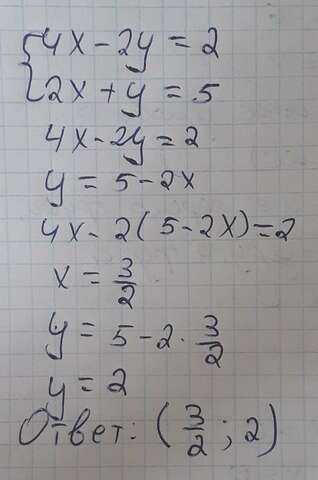 {4x - 2y = 2
2x + y = 5
4x - 2y = 2
y = 5 - 2x
4x - 2(5 - 2x) = 2
x = 3/2
y = 5 - 2 · 3/2
y = 2
Ответ: (3/2; 2)